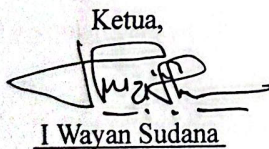 Ketua,
I Wayan Sudana